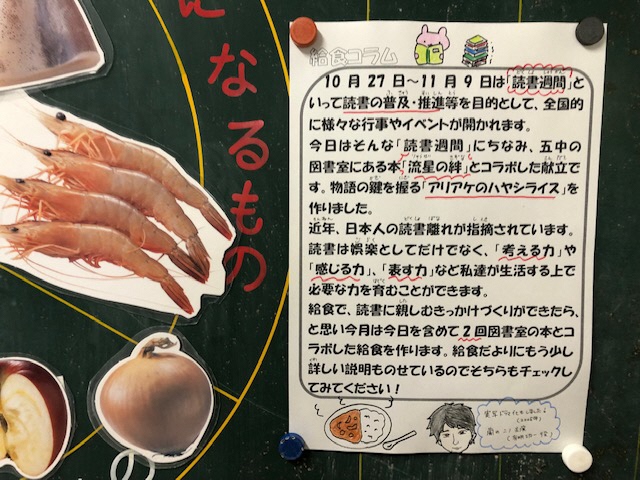 になるもの
給食コラム
10月27日～11月9日は「読書週間」と
いって読書の普及・推進等を目的として、全国的
に様々な行事やイベントが開かれます。
今日はそんな「読書週間」にちなみ、五中の
図書室にある本「流星の絆」とコラボした献立で
す。物語の鍵を握る「アリアケのハヤシライス」を
作りました。
近年、日本人の読書離れが指摘されています。
読書は娯楽としてだけでなく、「考える力」や
「感じる力」、「表す力」など私達が生活する上で
必要な力を育むことができます。
給食で、読書に親しむきっかけづくりができたら、
と思い今月は今日を含めて2回図書室の本とコ
ラボした給食を作ります。給食だよりにもう少し
詳しい説明ものせているのでそちらもチェックし
てみてください！
実写ドライ化もしました♪